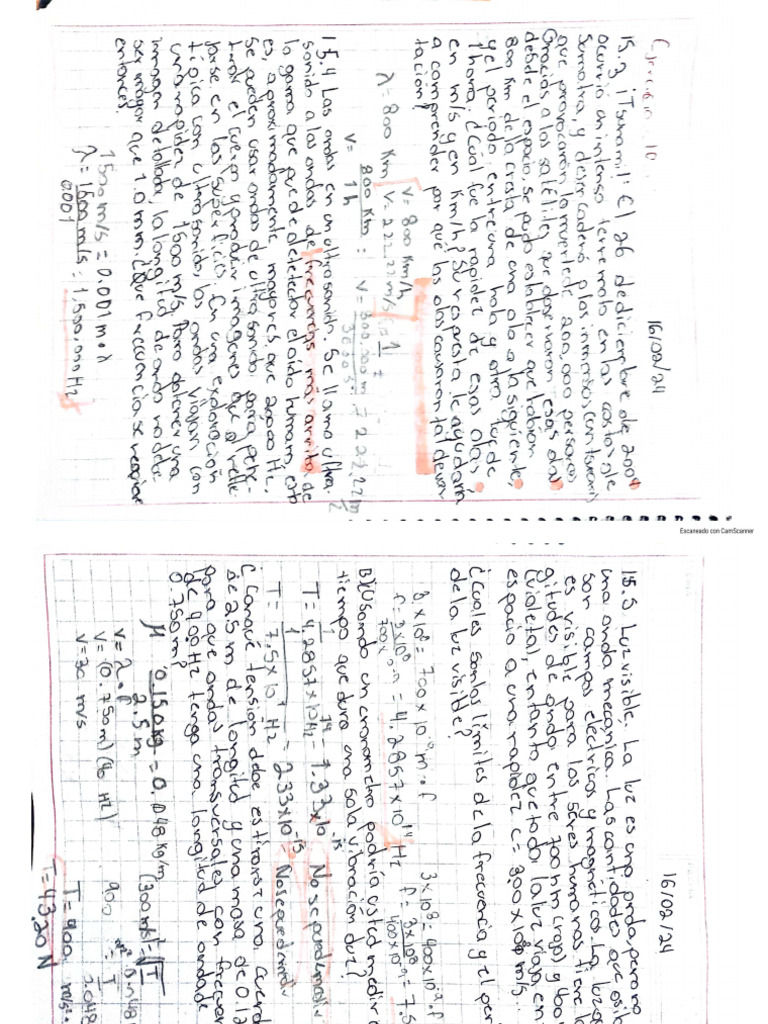 Ejercicio 10
16/02/24
15.3 ¡Tsunami! El 26 de diciembre de 2004
ocurrió un intenso terremoto en las costas de
Sumatra, y desencadenó olas inmensas (un tsunami)
que provocaron la muerte de 200,000 personas
Gracias a los satélites que observaron esas olas
desde el espacio, se pudo establecer que habian
800 Km de la cresta de una ola a la siguiente,
y el periodo entre una hola y otro fue de
1 hora. ¿Cuál fue la rapidez de esas olas
en m/s y en Km/h? Su respuesta le ayudará
a comprender por qué las olas causaron tal devas-
tación?
λ = 800 Km
V = 800 Km/h
V = 222.22 m/s
V = 800 Km / 1 h = V = 800.000 m / 3600 s = 222,22 m/s
15.4 Las ondas en un ultrasonido. Se llama ultra-
sonido a las ondas de frecuencias más arriba de
la gama que puede detectar el oido humano, esto
es, aproximadamente mayores que 20,000 Hz.
Se pueden usar ondas de ultrasonido para pene-
trar el cuerpo y producir imágenes que al refle-
jarse en las superficies. En una exploración
típica con ultrasonido, las ondas viajan con
una rapidez de 1500 m/s. Para obtener una
imagen detallada, la longitud de onda no debe
ser mayor que 1.0 mm. ¿Que frecuencia se requiere
entonces.
1500 m/s = 0.001 m · λ
λ = 1500 m/s / 0.001 = 1,500,000 Hz
Escaneado con CamScanner
16/02/24
15.5 Luz visible. La luz es una onda, pero no
una onda mecanica. Las cantidades que osila
son campos eléctricos y magnéticos. La luz q
es visible para los seres humanos tiene lo
gitudes de onda entre 700 nm (rojo) y 400
(violeta), en tanto que toda la luz viaja en
espacio a una rapidez c = 3.00 x 10⁸ m/s.
¿Cuales son los límites de la frecuencia y el per
de la luz visible?
3 x 10⁸ = 700 x 10⁻⁹ m · f
f = 3 x 10⁸ / 700 x 10⁻⁹ = 4.2857 x 10¹⁴ Hz
3 x 10⁸ = 400 x 10⁻⁹ · f
f = 3 x 10⁸ / 400 x 10⁻⁹ = 7.5
B) ¿Usando un cronometro podría usted medir e
tiempo que dura una sola vibración de luz?
T = 1 / 4.2857 x 10¹⁴ Hz = 1.33 x 10⁻¹⁵ No se puede medir
T = 1 / 7.5 x 10¹⁴ Hz = 2.33 x 10⁻¹⁵ = No se puede medir
C ¿Con qué tensión debe estirarse una cuerd
de 2.5 m de longitud y una masa de 0.12
para que ondas transversales con frecuen
de 40.0 Hz tenga una longitud de onda de
0.750 m?
μ 0.120 Kg / 2.5 m = 0.048 Kg/m
V = λ · f
V = (0.750 m) (40 Hz)
V = 30 m/s
900 = T / 0.048
T = 43.20 N